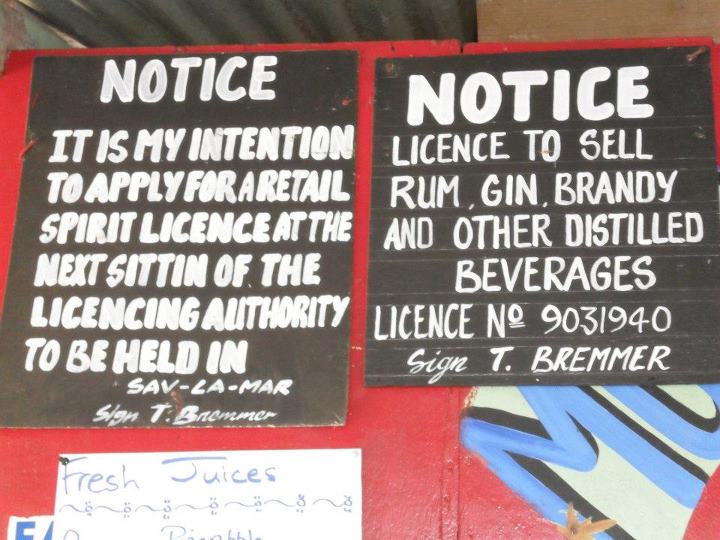 NOTICE
IT IS MY INTENTION
TO APPLY FOR A RETAIL
SPIRIT LICENCE AT THE
NEXT SITTIN OF THE
LICENCING AUTHORITY
TO BE HELD IN
SAV-LA-MAR
Sign T. Bremmer
NOTICE
LICENCE TO SELL
RUM, GIN, BRANDY
AND OTHER DISTILLED
BEVERAGES
LICENCE Nº 9031940
Sign T. BREMMER
Fresh Juices